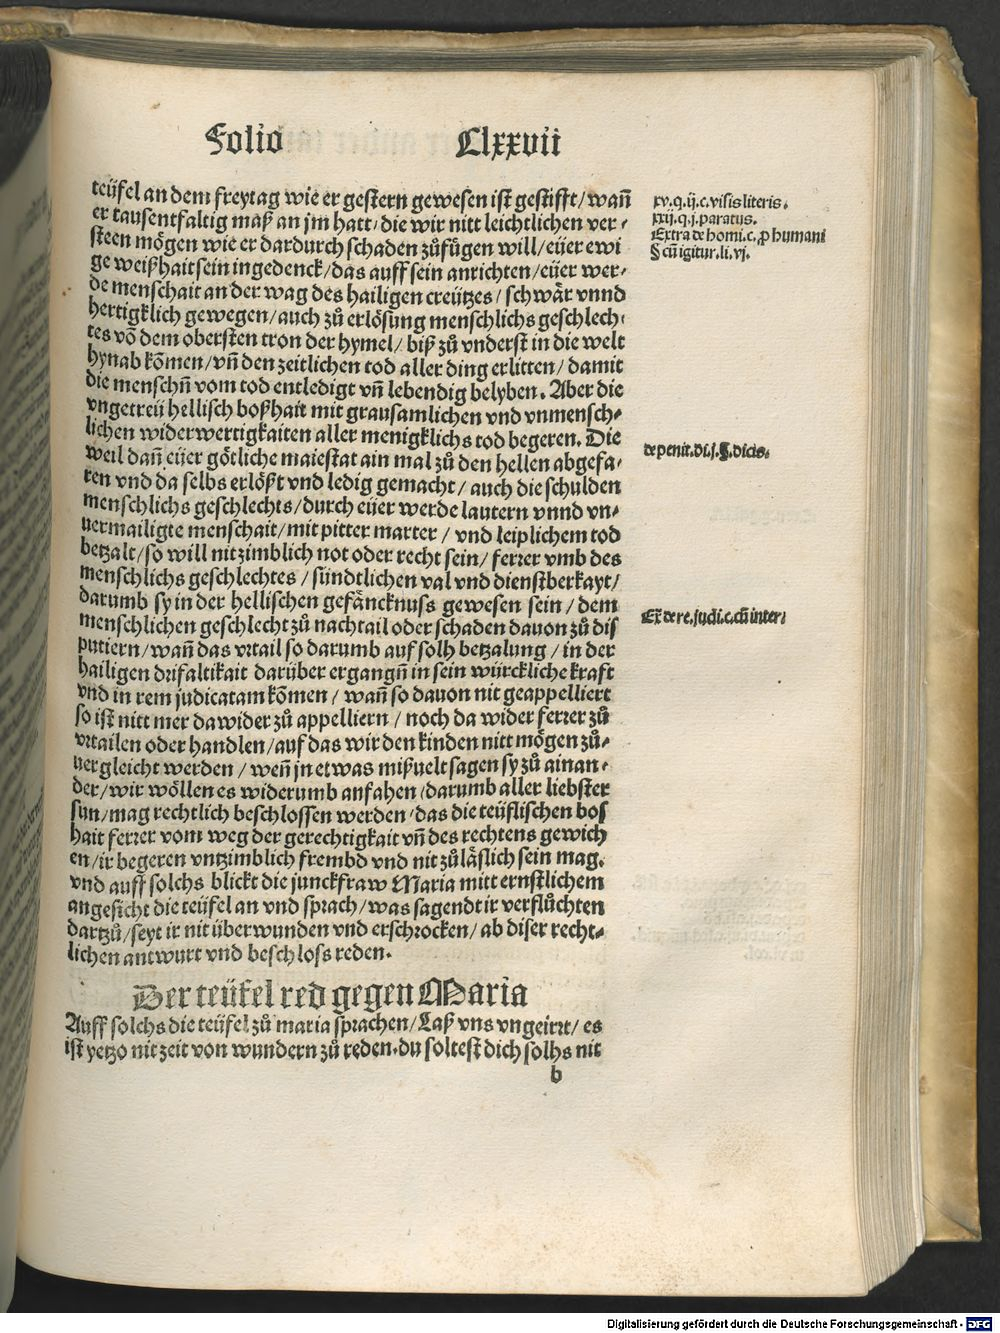 Folio Clxxvii
teüfel an dem freytag wie er gestern gewesen ist gestifft/ wañ
er tausentfaltig maß an jm hatt/ die wir nitt leichtlichen ver⸗
steen mögen wie er dardurch schaden zůfügen will/ eüer ewi
ge weißhait sein ingedenck/ das auff sein anrichten/ eüer wer⸗
de menschait an der wag des hailigen creützes/ schwär vnnd
hertigklich gewegen/ auch zů erlösung menschlichs geschlech⸗
tes võ dem obersten tron der hymel/ biß zů vnderst in die welt
hynab kõmen/ vñ den zeitlichen tod aller ding erlitten/ damit
die menschñ vom tod entledigt vñ lebendig belyben. Aber die
vngetreü hellisch boßhait mit grausamlichen vnd vnmensch⸗
lichen widerwertigkaiten aller menigklichs tod begeren. Die
weil dañ eüer götliche maiestat ain mal zů den hellen abgefa⸗
ren vnd da selbs erlößt vnd ledig gemacht/ auch die schulden
menschlichs geschlechts/ durch eüer werde lautern vnnd vn⸗
uermailigte menschait/ mit pitter marter/ vnd leiplichem tod
betzalt/ so will nit zimblich not oder recht sein/ ferrer vmb des
menschlichs geschlechtes/ sündtlichen val vnd dienstberkayt/
darumb sy in der hellischen gefäncknuss gewesen sein/ dem
menschlichen geschlecht zů nachtail oder schaden dauon zů dis
putiern/ wañ das vrtail so darumb auf solh betzalung/ in der
hailigen drifaltikait darüber ergangñ in sein würckliche kraft
vnd in rem judicatam kõmen/ wañ so dauon nit geappelliert
so ist nitt mer da wider zů appelliern/ noch da wider ferrer zů
vrtailen oder handlen/ auf das wir den kinden nitt mögen zů⸗
uergleicht werden/ weñ jn etwas mißuelt sagen sy zů ainan⸗
der/ wir wöllen es widerumb anfahen/ darumb aller liebster
sun/ mag rechtlich beschlossen werden/ das die teüflischen bos
hait ferrer vom weg der gerechtigkait vñ des rechtens gewich
en/ ir begeren vntzimblich frembd vnd nit zůläslich sein mag.
vnd auff solchs blickt die junckfraw Maria mitt ernstlichem
angesicht die teüfel an vnd sprach/ was sagendt ir verflůchten
dartzů/ seyt ir nit überwunden vnd erschrocken/ ab diser recht⸗
lichen antwurt vnd beschloss reden.
Der teüfel red gegen Maria
Auff solchs die teüfel zů maria sprachen/ Laß vns vngeirrt/ es
ist yetzo nit zeit von wundern zů reden. du soltest dich solhs nit
b
xv. q. ij. c. visis literis.
xxij. q. j. paratus.
Extra de homi. c. ꝓ humani
§ cũ igitur. li. vj.
de penit. di. j. §. dicis.
Ex̃ de re. judi. c. cũ inter.
Digitalisierung gefördert durch die Deutsche Forschungsgemeinschaft - DFG